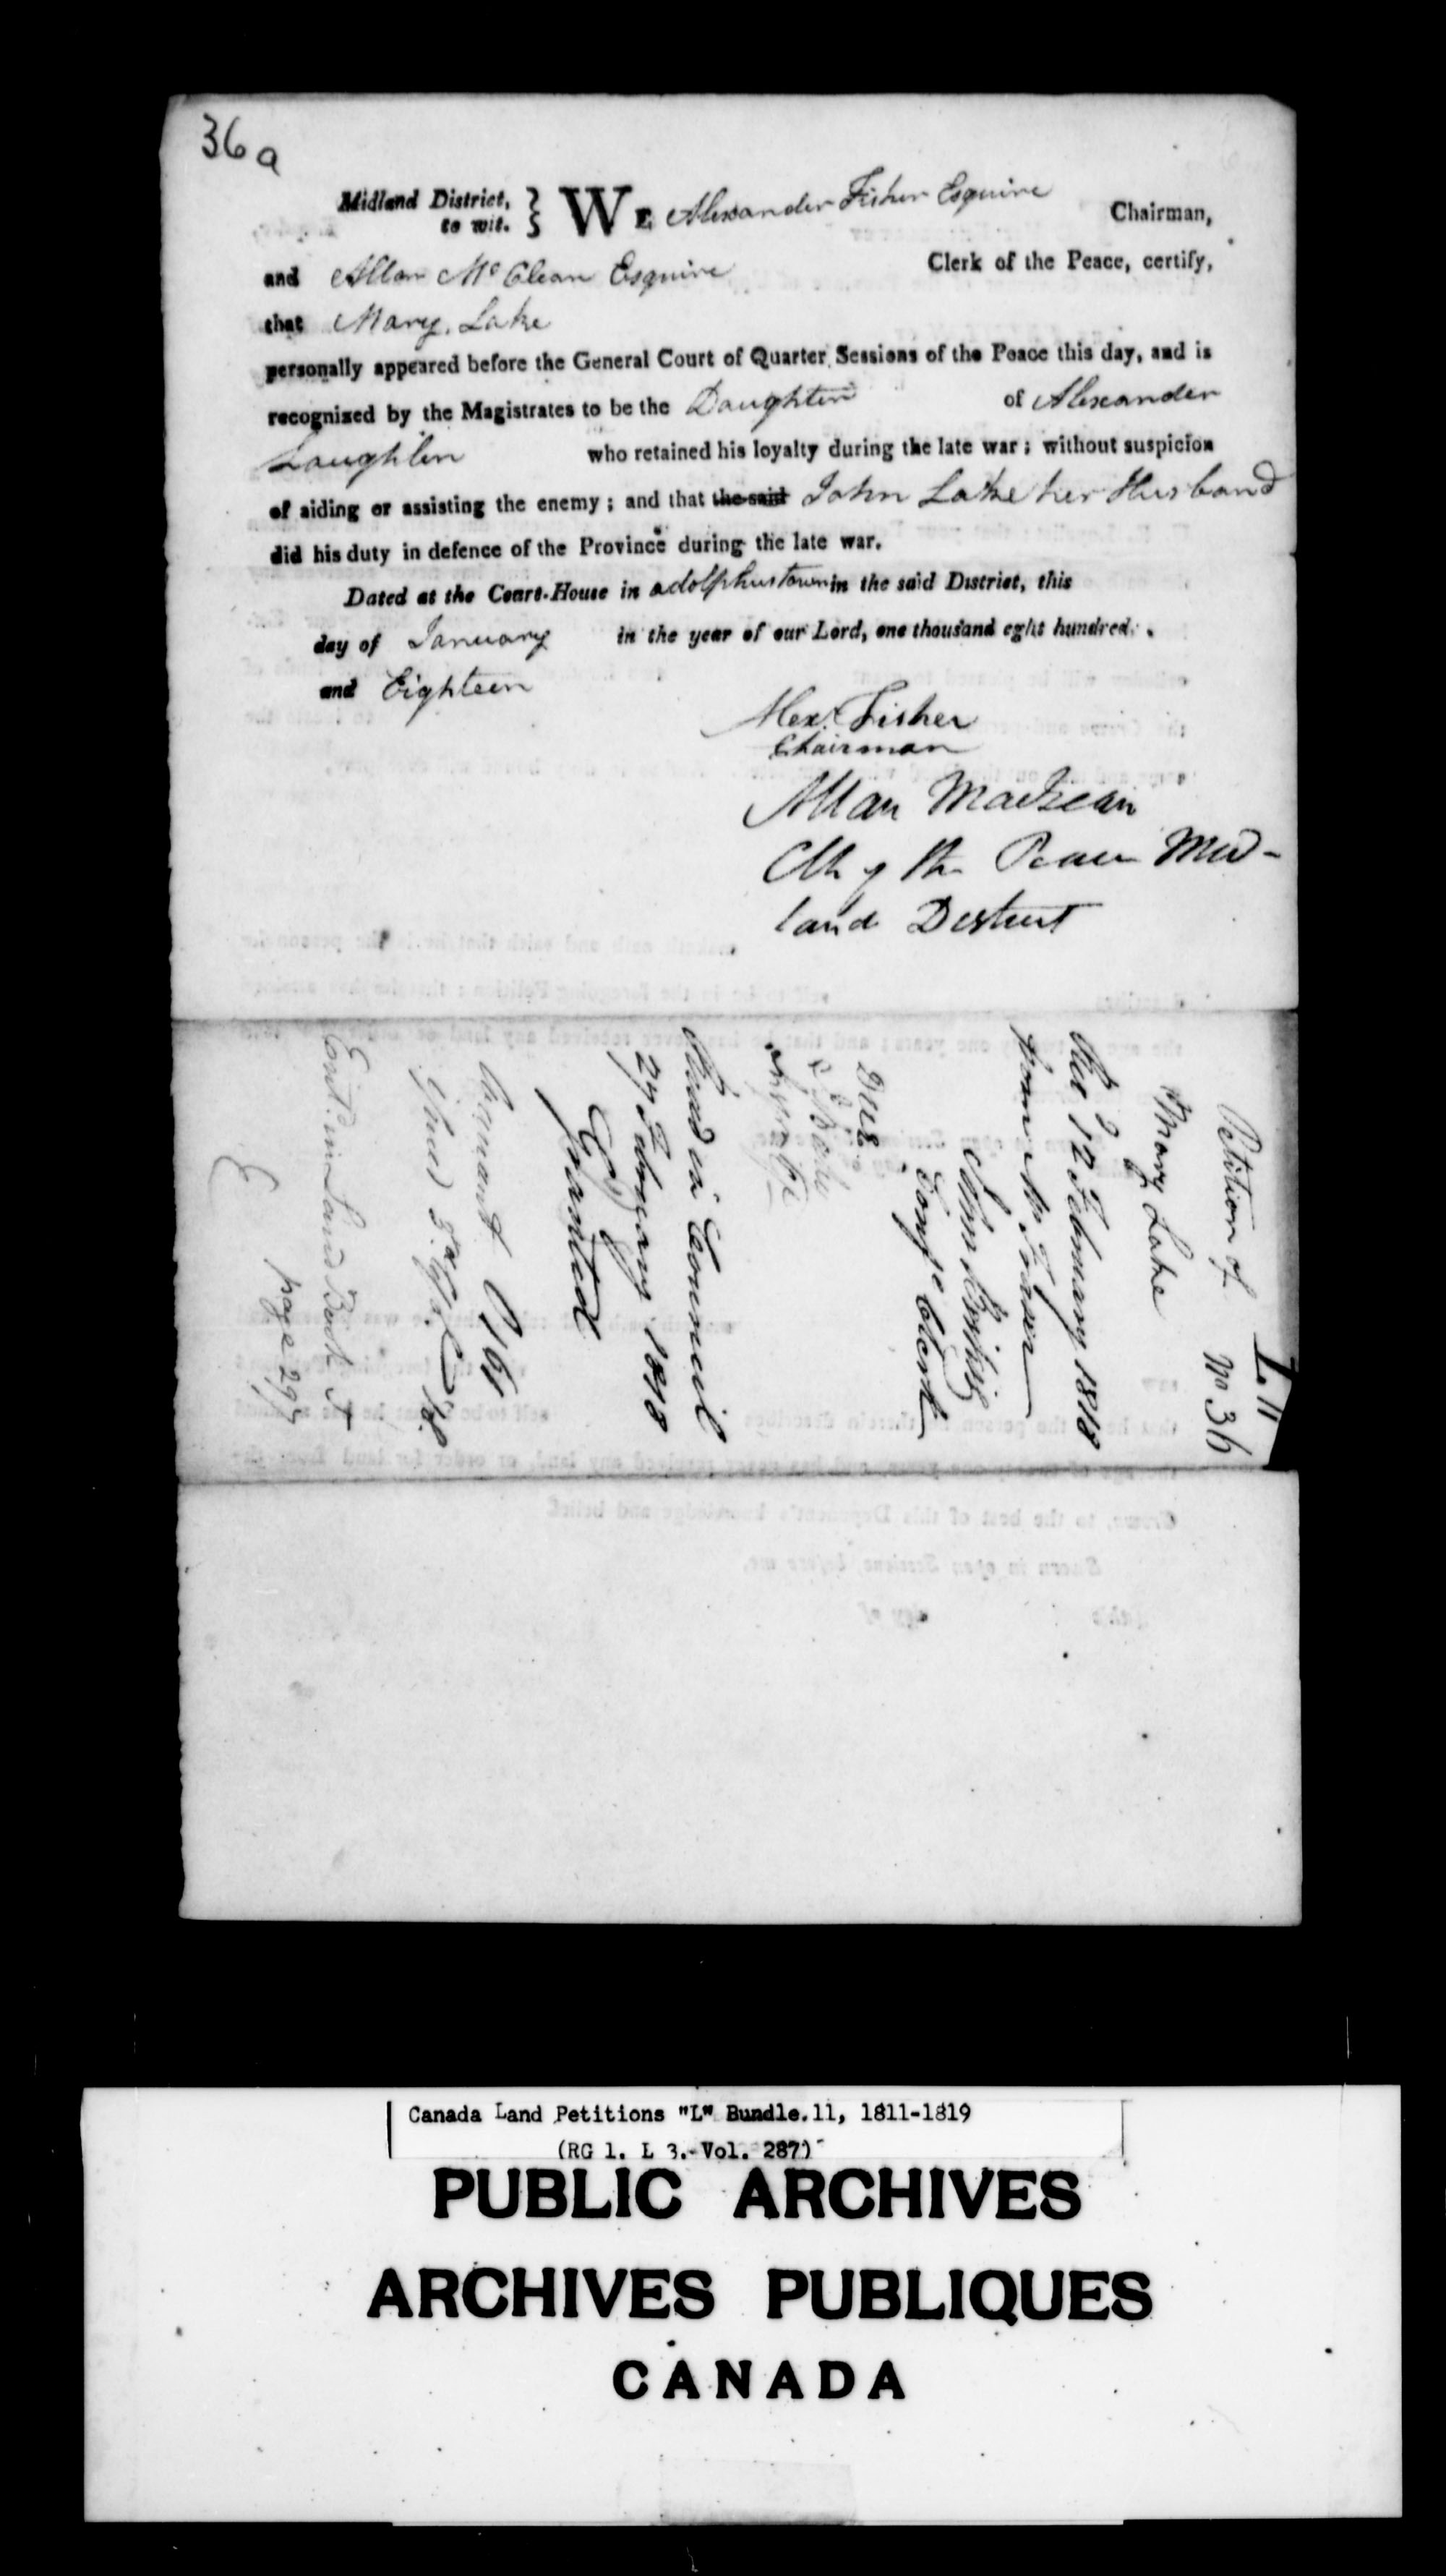 36a
Midland District, to wit. } WE Alexander Fisher Esquire Chairman,
and Allan McClean Esquire Clerk of the Peace, certify,
that Mary Lake
personally appeared before the General Court of Quarter Sessions of the Peace this day, and is
recognized by the Magistrates to be the Daughter of Alexander
Laughlin who retained his loyalty during the late war; without suspicion
of aiding or assisting the enemy; and that the said John Lake her Husband
did his duty in defence of the Province during the late war.
Dated at the Court-House in adolphustown in the said District, this
day of January in the year of our Lord, one thousand eght hundred.
and Eighteen
Alex. Fisher
Chairman
Allan MacLean
Clk of the Peace Mid-
land District
L 11
No 36
Petition of
Mary Lake
Recd 12 February 1818
from Mr. Fraser
John
Conf. Clerk
Read in Council
27 February 1818
Granted
Warrant
Issued 3d
Entd. in Land Book
page 297
Canada Land Petitions "L" Bundle.11, 1811-1819
(RG 1. L 3.-Vol. 287)
PUBLIC ARCHIVES
ARCHIVES PUBLIQUES
CANADA